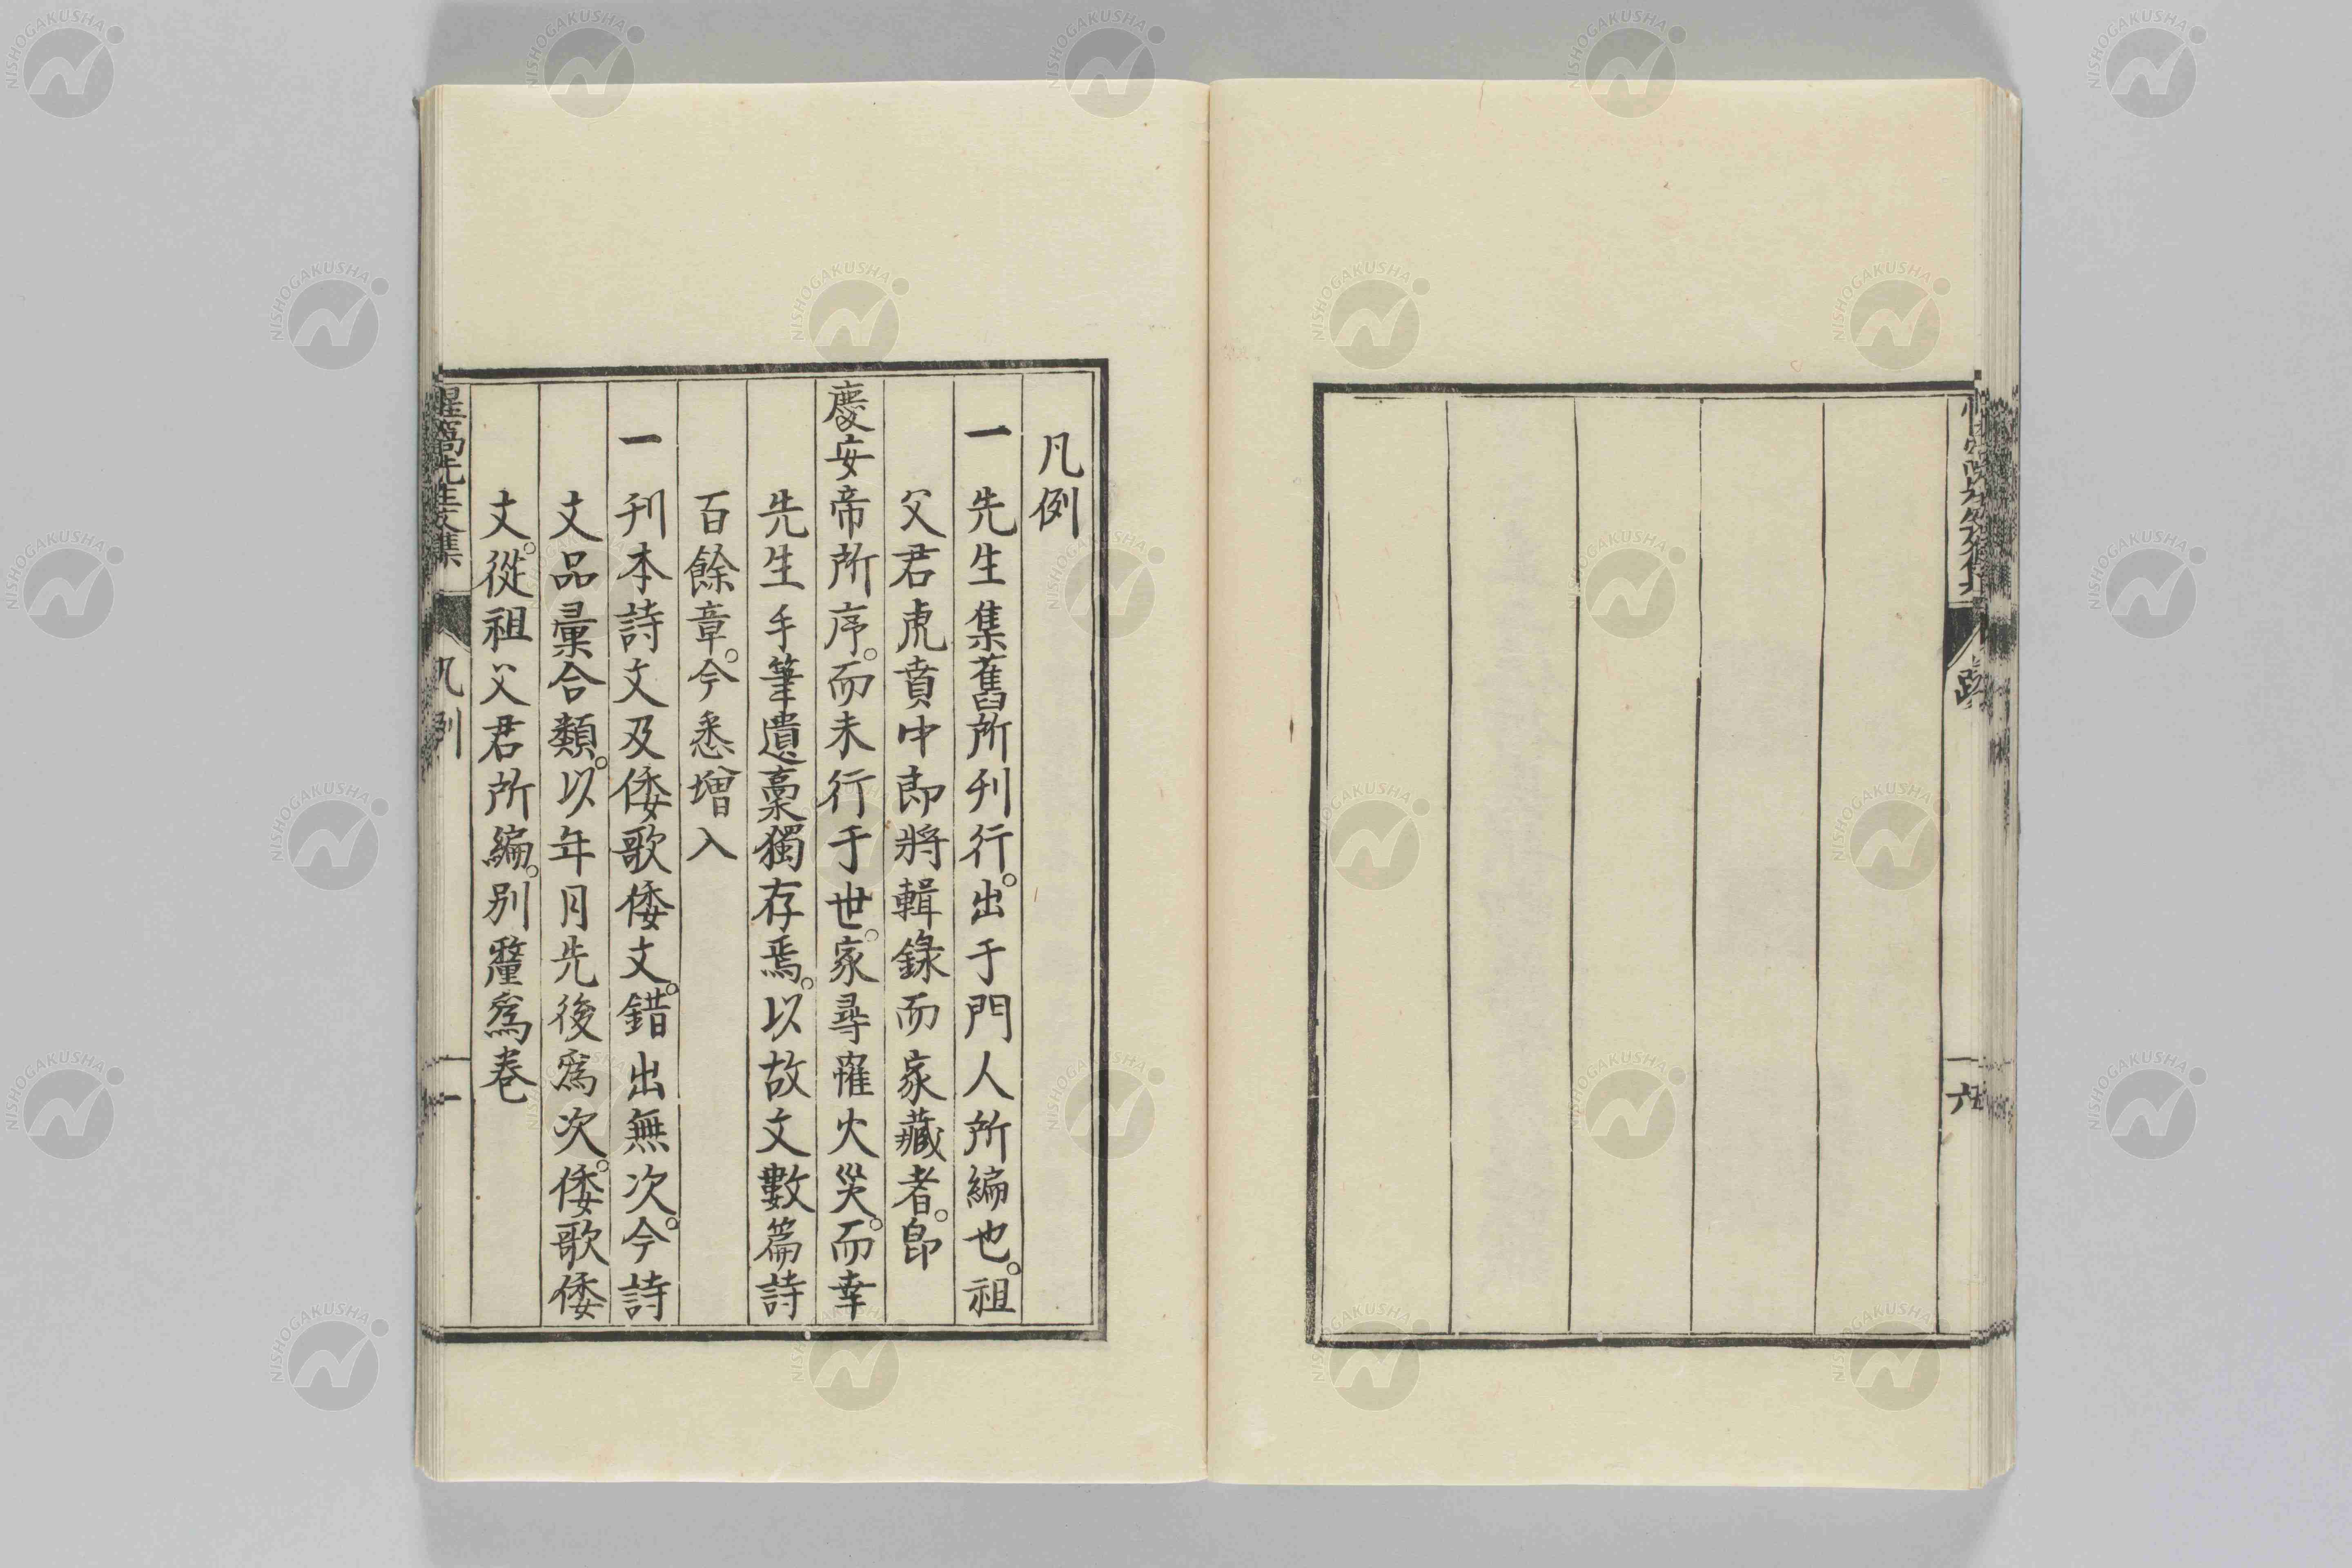 凡例
一先生集舊所刊行。出于門人所編也。祖
父君虎賁中郎將輯錄而家藏者。即
慶安帝所序。而未行于世。家尋罹火災。而幸
先生手筆遺稾獨存焉。以故文數篇詩
百餘章。今悉增入
一刊本詩文及倭歌倭文。錯出無次。今詩
文品彙合類。以年月先後爲次。倭歌倭
文。從祖父君所編。別釐爲卷
惺窩先生文集 凡例 一
六
NISHOGAKUSHA